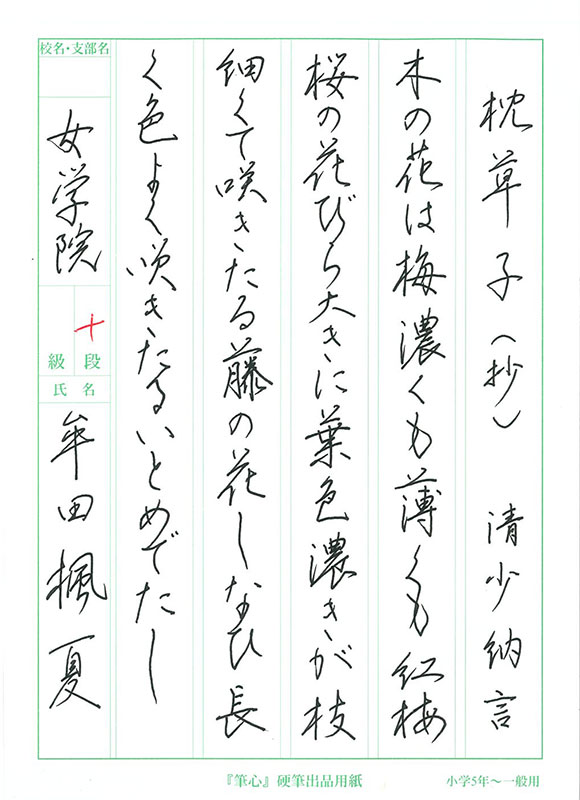 枕草子（抄） 清少納言
木の花は梅濃くも薄くも紅梅
桜の花びら大きに葉色濃きが枝
細くて咲きたる藤の花しなひ長
く色よく咲きたるいとめでたし
校名・支部名
女学院
十
段
級
氏名
牟田楓夏
『筆心』硬筆出品用紙
小学5年～一般用